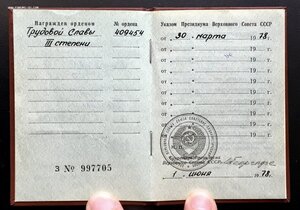 Награжден орденом
№ ордена
Трудовой Славы
409454
III степени
З № 997705
Указом Президиума Верховного Совета СССР
от „ 30 " марта 1978 г.
от „ " 19 г.
от „ " 19 г.
от „ " 19 г.
от „ " 19 г.
от „ " 19 г.
от „ " 19 г.
от „ " 19 г.
Верховного Совета СССР
„ 1 " июня 1978 г.